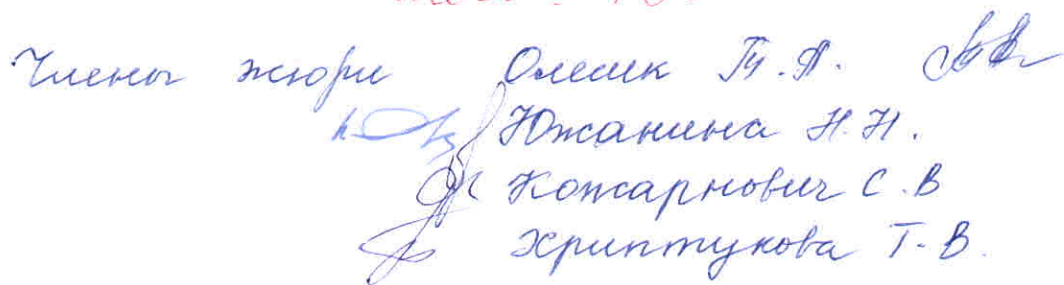 Члены жюри Олесик Т.П.
Южанина Н.Н.
Кожарнович С.В
Хриптукова Т.В.